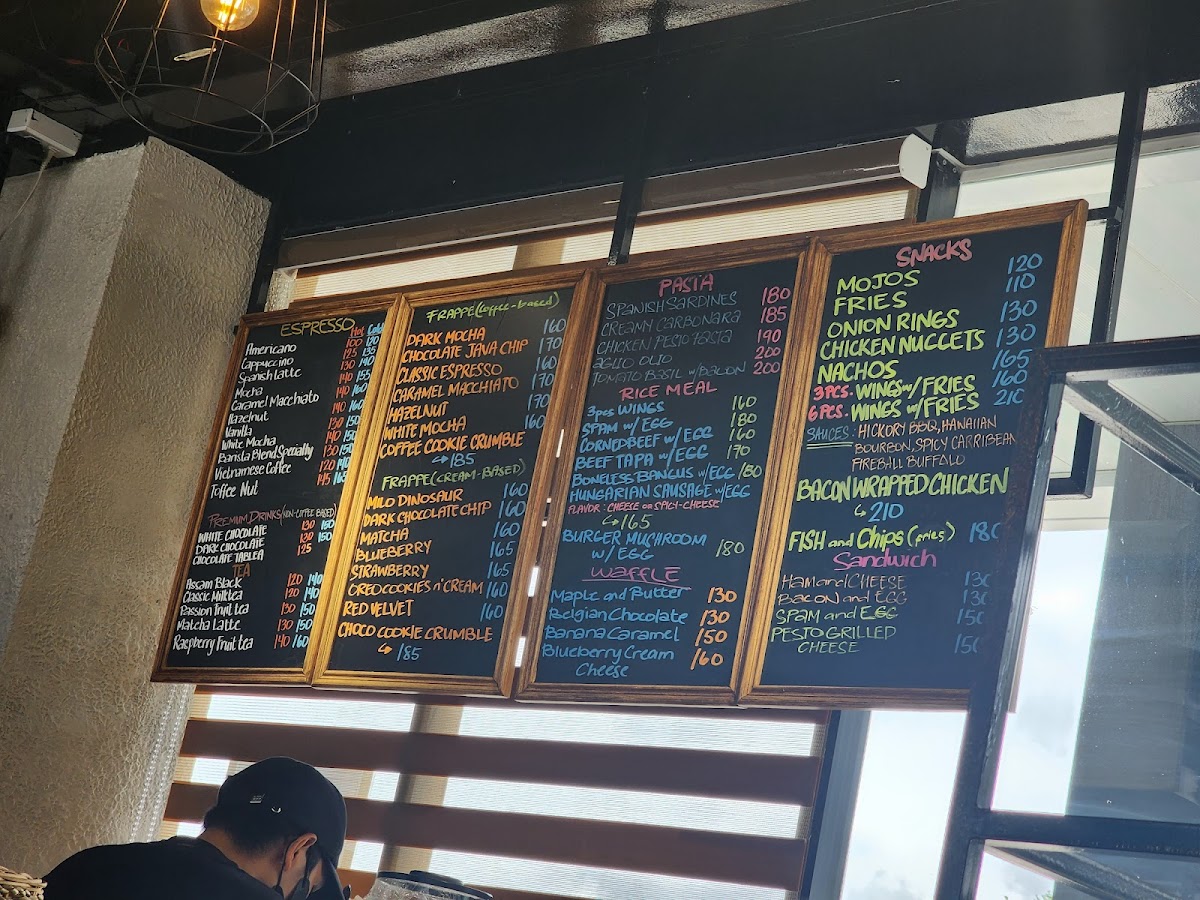 ESPRESSO Hot Cold
Americano 100 120
Cappuccino 125 135
Spanish latte 130 140
Mocha 140 155
Caramel Macchiato 140 160
Hazelnut 140 160
Vanilla 130 150
White Mocha 140 150
Barista Blend Specialty 130 150
Vietnamese Coffee 120 140
Toffee Nut 145 165
PREMIUM DRINKS (NON-COFFEE BASED)
WHITE CHOCOLATE 130 150
DARK CHOCOLATE 130 150
CHOCOLATE TABLEA 125
TEA
Assam Black 120 140
Classic Milktea 120 140
Passion Fruit tea 130 150
Matcha Latte 130 150
Raspberry Fruit tea 140 160
FRAPPE (coffee-based)
DARK MOCHA 160
CHOCOLATE JAVA CHIP 170
CLASSIC ESPRESSO 160
CARAMEL MACCHIATO 170
HAZELNUT 170
WHITE MOCHA 160
COFFEE COOKIE CRUMBLE
↪ 185
FRAPPE (CREAM-BASED)
MILO DINOSAUR 160
DARK CHOCOLATE CHIP 160
MATCHA 160
BLUEBERRY 165
STRAWBERRY 165
OREO COOKIES n' CREAM 160
RED VELVET 160
CHOCO COOKIE CRUMBLE
↪ 185
PASTA
SPANISH SARDINES 180
CREAMY CARBONARA 185
CHICKEN PESTO PASTA 190
AGLIO OLIO 200
TOMATO BASIL w/ BACON 200
RICE MEAL
3pcs WINGS 160
SPAM w/ EGG 180
CORNEDBEEF w/ EGG 160
BEEF TAPA w/ EGG 170
BONELESS BANGUS w/EGG 180
HUNGARIAN SAUSAGE w/EGG
FLAVOR: CHEESE or SPICY-CHEESE
↪ 165
BURGER MUSHROOM
w/ EGG 180
WAFFLE
Maple and Butter 130
Belgian Chocolate 130
Banana Caramel 150
Blueberry Cream
Cheese 160
SNACKS
MOJOS 120
FRIES 110
ONION RINGS 130
CHICKEN NUGGETS 130
NACHOS 165
3PCS. WINGS w/ FRIES 160
6PCS. WINGS w/ FRIES 210
SAUCES: HICKORY BBQ, HAWAIIAN
BOURBON, SPICY CARRIBEAN
FIREBALL BUFFALO
BACON WRAPPED CHICKEN
↪ 210
FISH and Chips (fries) 180
Sandwich
HAM and CHEESE 130
BACON and EGG 130
SPAM and EGG 150
PESTO GRILLED
CHEESE 150